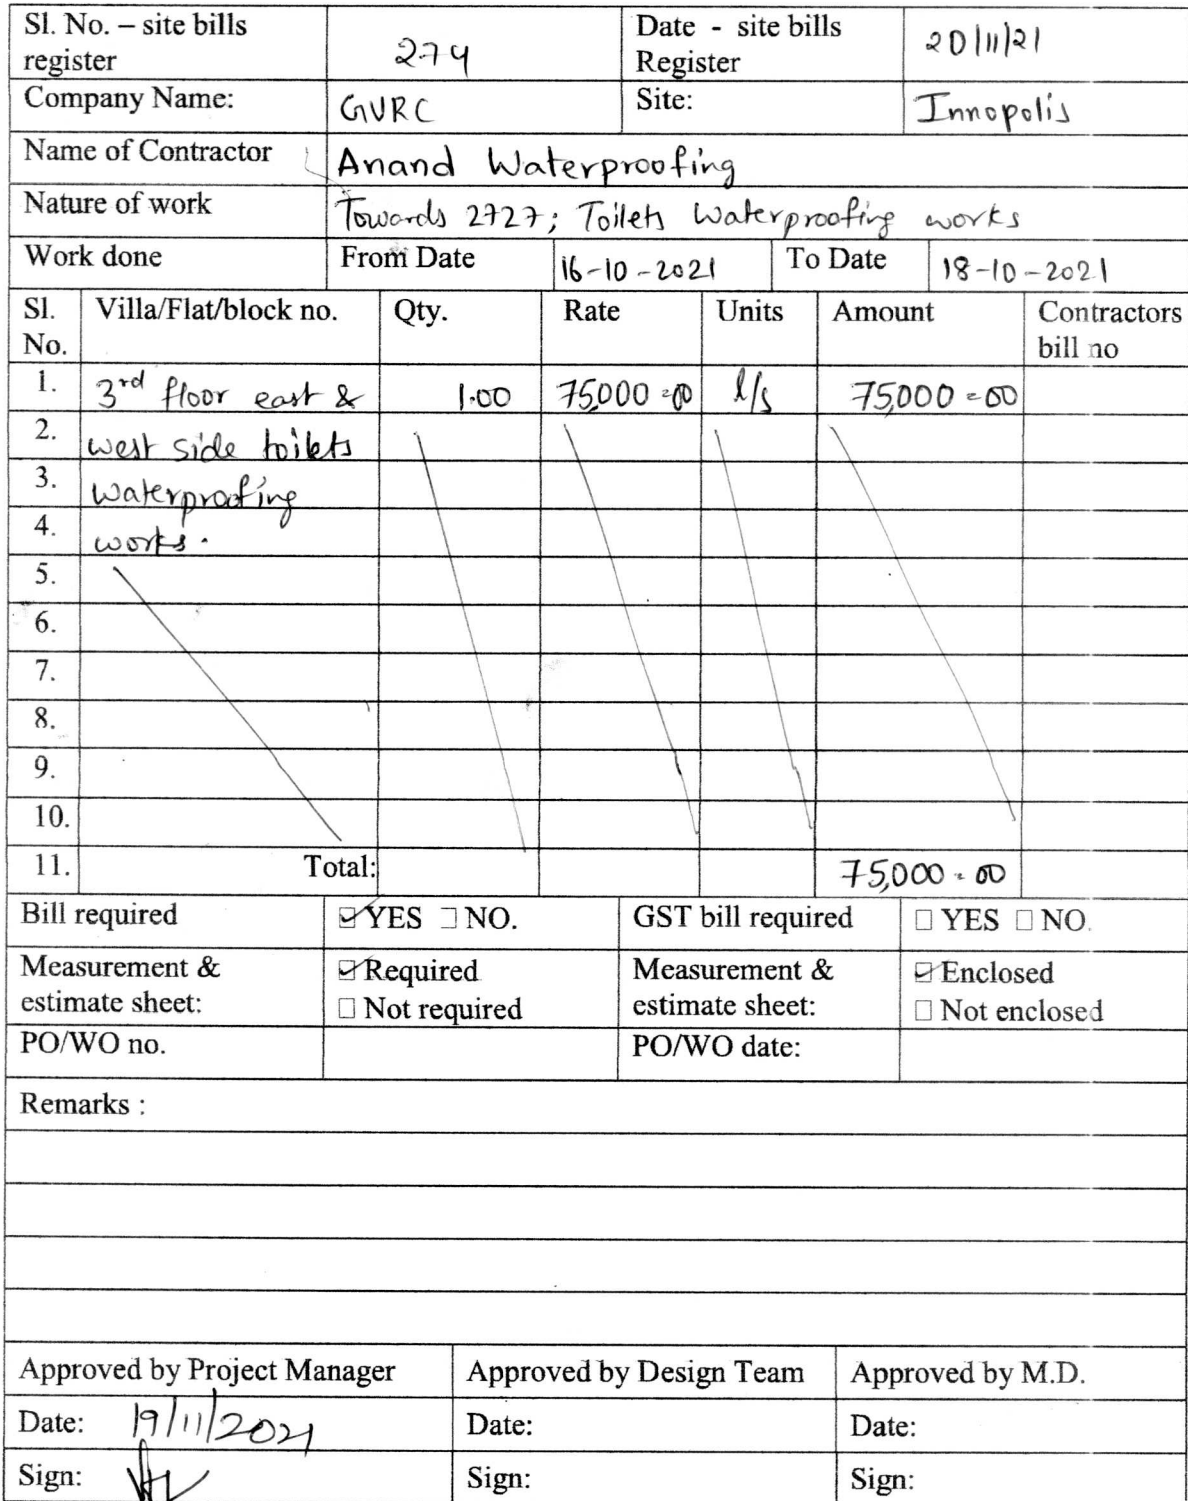 Sl. No. – site bills register 274 Date - site bills Register 20/11/21
Company Name: GVRC Site: Innopolis
Name of Contractor Anand Waterproofing
Nature of work Towards 2727; Toilets Waterproofing works
Work done From Date 16-10-2021 To Date 18-10-2021
Sl. No. Villa/Flat/block no. Qty. Rate Units Amount Contractors bill no
1. 3rd floor east & 1.00 75,000=00 l/s 75,000=00
2. west side toilets
3. waterproofing
4. works.
5.
6.
7.
8.
9.
10.
11. Total: 75,000=00
Bill required ☑ YES ☐ NO. GST bill required ☐ YES ☐ NO.
Measurement & estimate sheet: ☑ Required ☐ Not required Measurement & estimate sheet: ☑ Enclosed ☐ Not enclosed
PO/WO no. PO/WO date:
Remarks :
Approved by Project Manager Approved by Design Team Approved by M.D.
Date: 19/11/2021 Date: Date:
Sign: Sign: Sign: